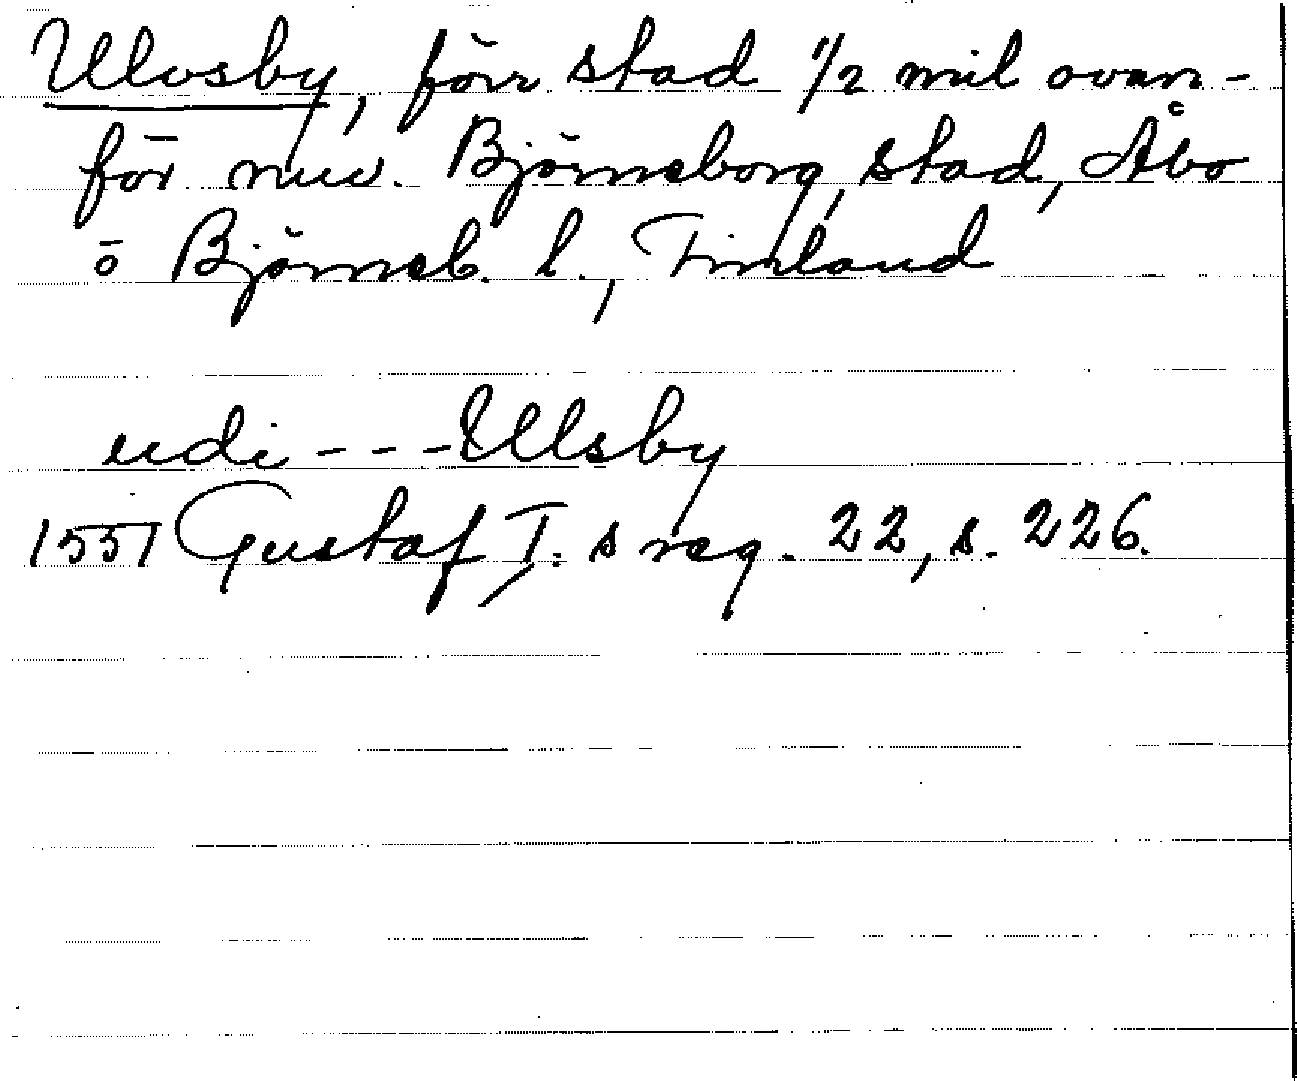 Ulvsby, förr stad 1/2 mil ovan-
för nuv. Björneborg, stad, Åbo
o Björneb. l., Finland
udi - - - Ulsby
1551 Gustaf I:s reg. 22, s. 226.